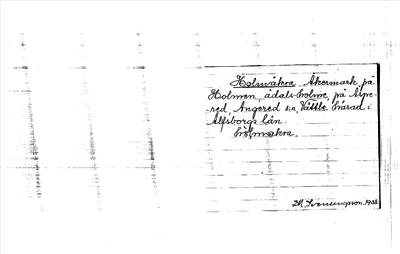 Holmåkra Åkermark på
Holmen, ådals-holme, på Aspe-
red, Angered sn, Vättle härad i
Älfsborgs län.
hòlmakra.
M. Svenungsson. 1938.